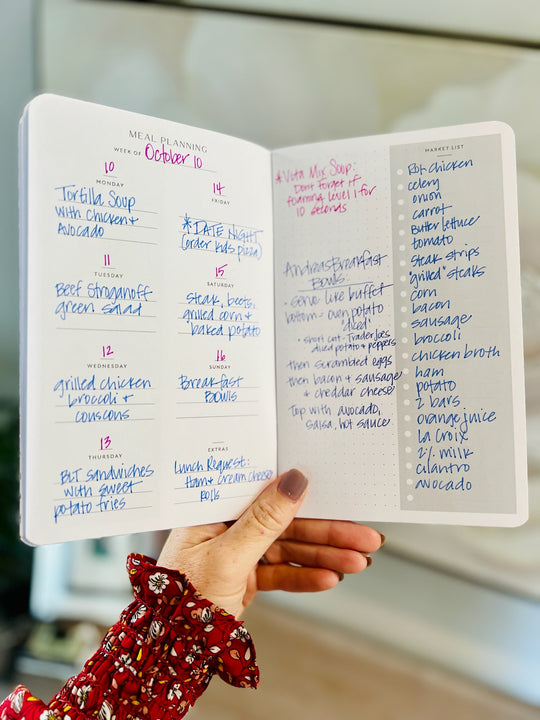 MEAL PLANNING
WEEK OF October 10
10
MONDAY
Tortilla Soup
with Chicken &
Avocado
11
TUESDAY
Beef Stroganoff
green salad
12
WEDNESDAY
grilled chicken
broccoli &
couscous
13
THURSDAY
BLT sandwiches
with sweet
potato fries
14
FRIDAY
*DATE NIGHT
(order kids pizza)
15
SATURDAY
steak, beets,
grilled corn &
baked potato
16
SUNDAY
Breakfast
Bowls
EXTRAS
Lunch Request:
Ham & cream cheese
Rolls
*Vita Mix Soup:
Dont forget it
foaming level 1 for
10 seconds
Andreas Breakfast
Bowls
- serve like buffet
bottom - oven potato
"diced"
* short cut - Trader Joes
diced potato & peppers
then scrambled eggs
then bacon & sausage
& cheddar cheese
Top with avocado,
salsa, hot sauce
MARKET LIST
Rot chicken
celery
onion
carrot
Butter lettuce
tomato
steak strips
"grilled" steaks
corn
bacon
sausage
broccoli
chicken broth
ham
potato
2 bars
orange juice
La Croix
2% milk
cilantro
avocado